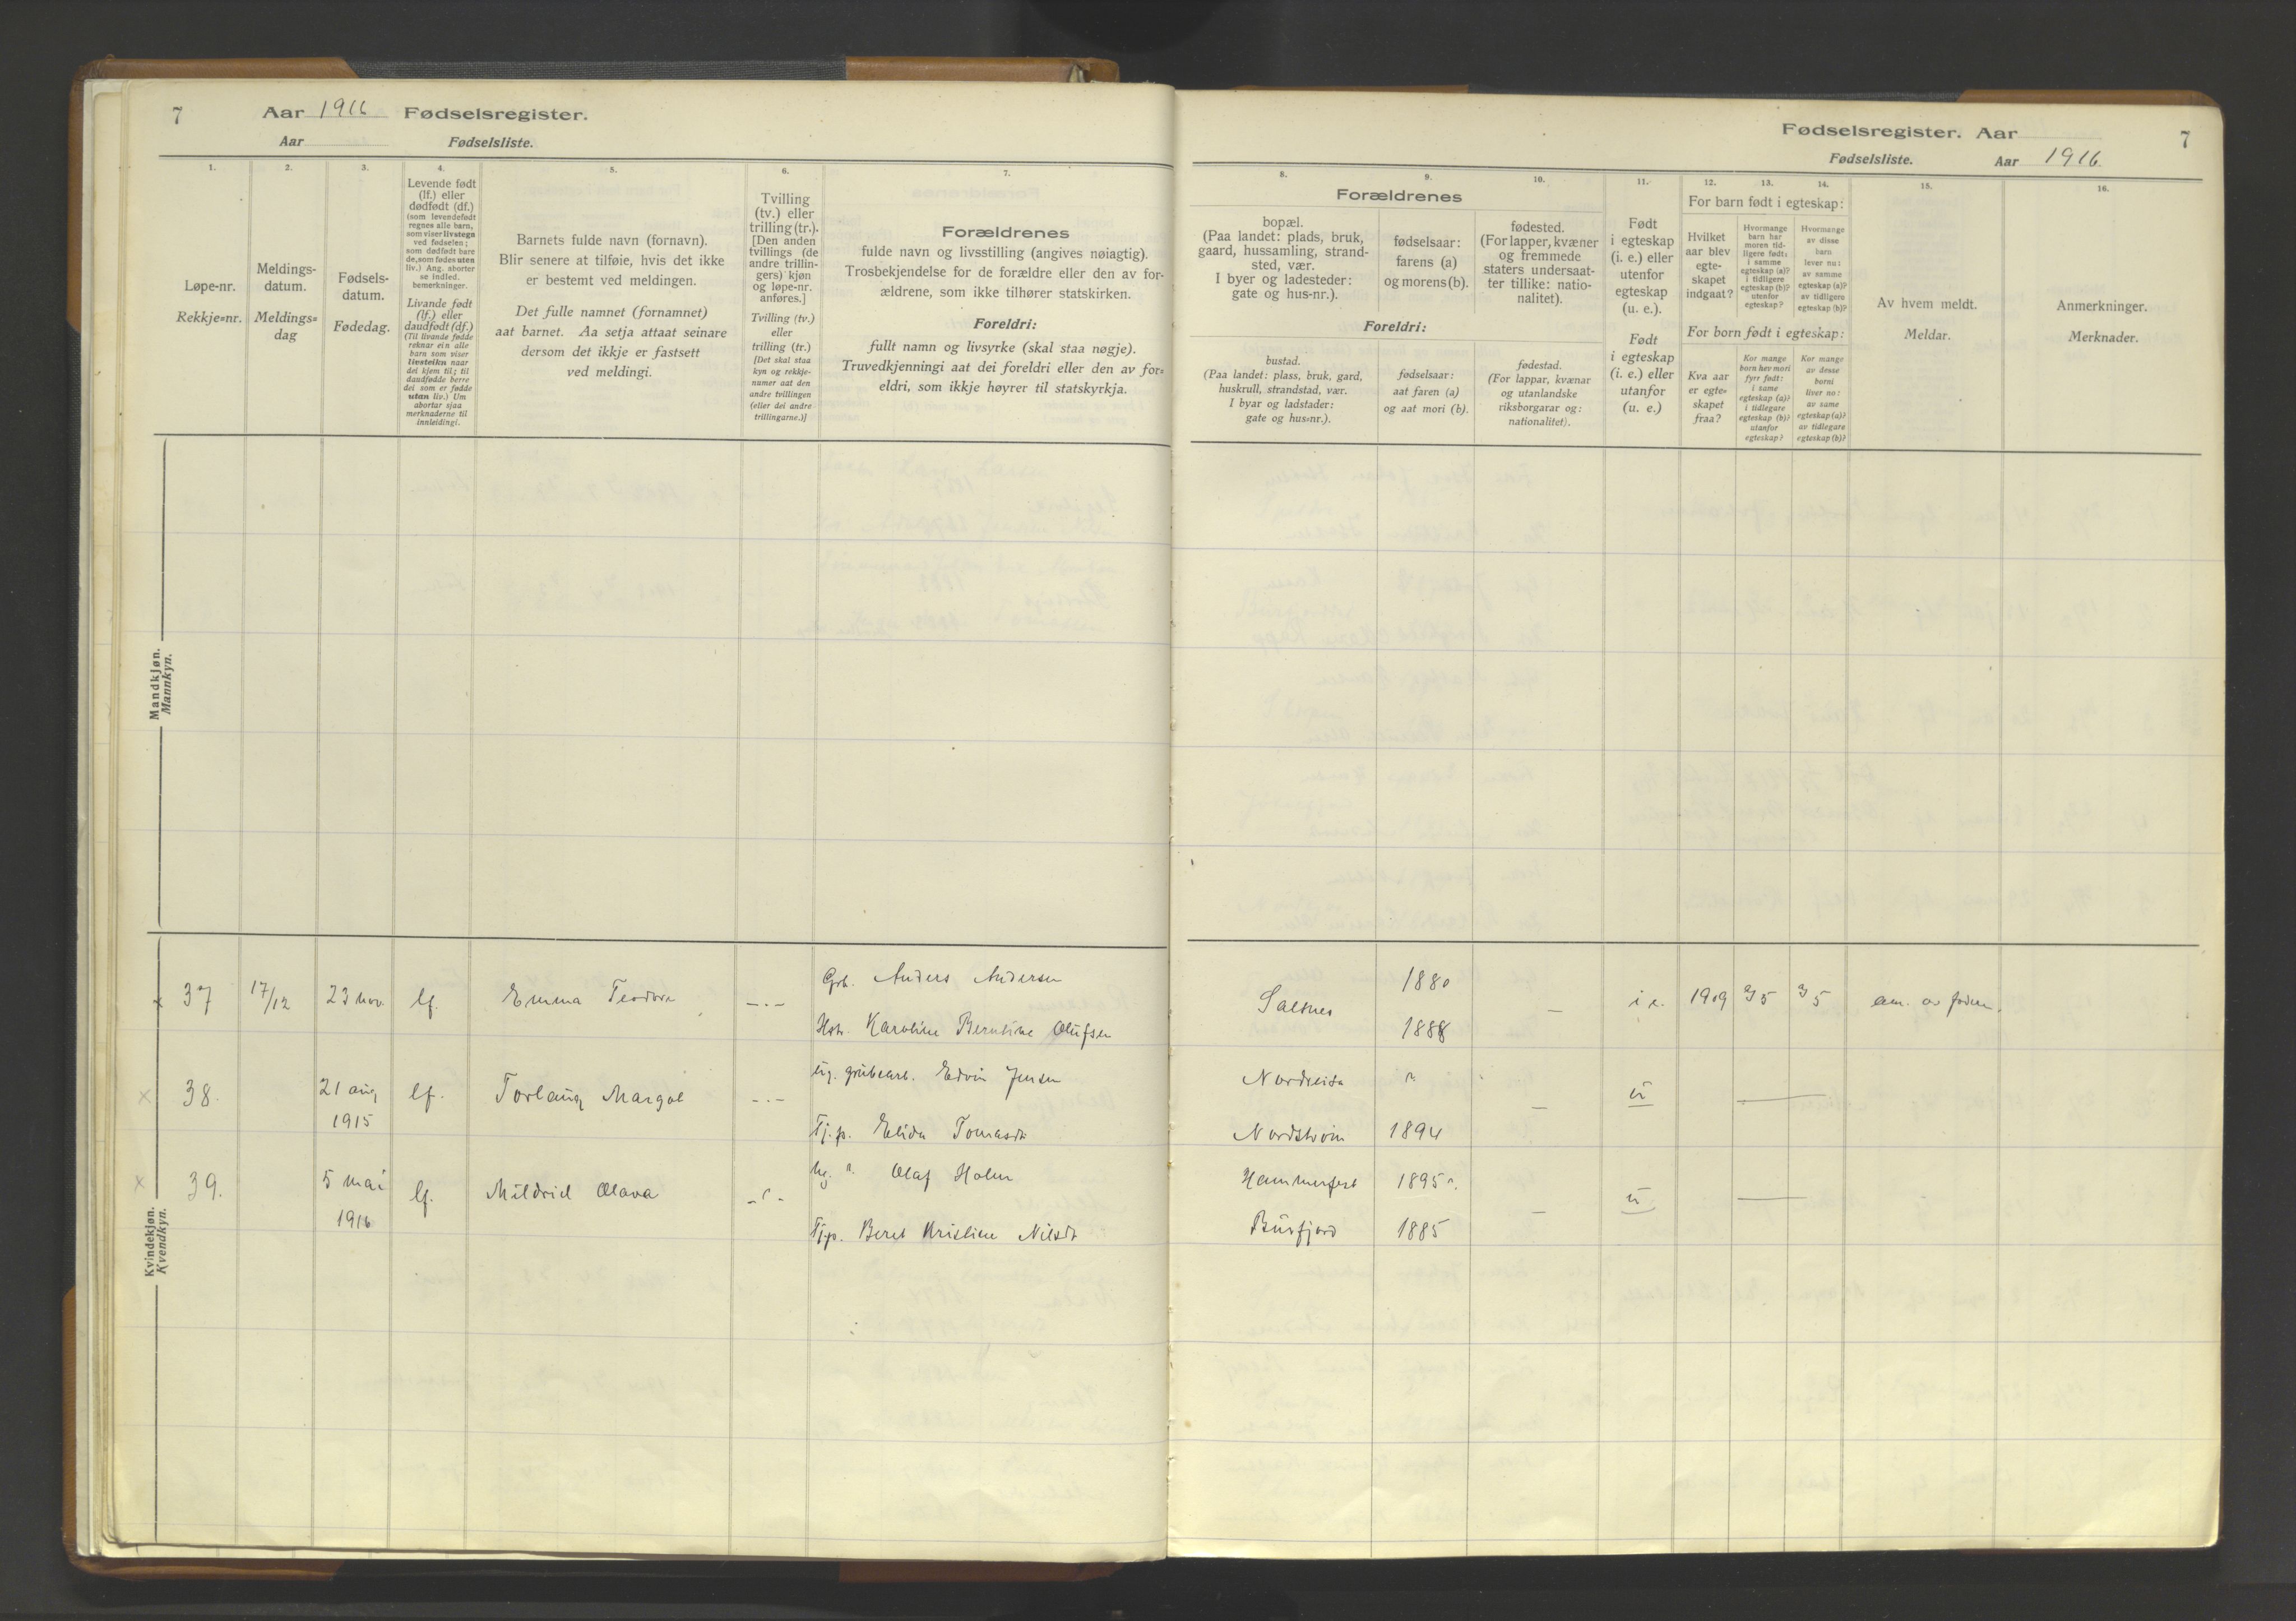 7 Aar 1916 Fødselsregister.
Aar Fødselsliste.
1. 2. 3. 4. 5. 6. 7.
Løpe-nr.
Rekkje=nr.
Meldings-
datum.
Meldings=
dag
Fødsels-
datum.
Fødedag.
Levende født
(lf.) eller
dødfødt (df.)
(som levendefødt
regnes alle barn,
som viser livstegn
ved fødselen;
som dødfødt bare
de, som fødes uten
liv.) Ang. aborter
se indled.
bemerkninger.
Livande født
(lf.) eller
daudfødt (df.)
(Til livande fødde
reknar ein alle
barn som viser
livsteikn naar
dei kjem til; til
daudfødde berre
dei som er fødde
utan liv.) Um
abortar sjaa
merknaderne til
innleidingi.
Barnets fulde navn (fornavn).
Blir senere at tilføie, hvis det ikke
er bestemt ved meldingen.
Det fulle namnet (fornamnet)
aat barnet. Aa setja attaat seinare
dersom det ikkje er fastsett
ved meldingi.
Tvilling
(tv.) eller
trilling (tr.).
[Den anden
tvillings (de
andre trillin-
gers) kjøn
og løpe-nr.
anføres.]
Tvilling (tv.)
eller
trilling (tr.)
[Det skal staa
kyn og rekkje-
numer aat den
andre tvillingen
(eller dei andre
trillingarne.)]
Forældrenes
fulde navn og livsstilling (angives nøiagtig).
Trosbekjendelse for de forældre eller den av for-
ældrene, som ikke tilhører statskirken.
Foreldri:
fullt namn og livsyrke (skal staa nøgje).
Truvedkjenningi aat dei foreldri eller den av for=
eldri, som ikkje høyrer til statskyrkja.
Fødselsregister. Aar 7
Fødselsliste. Aar 1916
8. 9. 10. 11. 12. 13. 14. 15. 16.
Forældrenes
bopæl.
(Paa landet: plads, bruk,
gaard, hussamling, strand-
sted, vær.
I byer og ladesteder:
gate og hus-nr.).
fødselsaar:
farens (a)
og morens (b).
fødested.
(For lapper, kvæner
og fremmede
staters undersaat-
ter tillike: natio-
nalitet).
Foreldri:
bustad.
(Paa landet: plass, bruk, gard,
huskrull, strandstad, vær.
I byar og ladstader:
gate og hus=nr.).
fødselsaar:
aat faren (a)
og aat mori (b).
fødestad.
(For lappar, kvænar
og utanlandske
riksborgarar og:
nationalitet).
Født
i egteskap
(i. e.) eller
utenfor
egteskap
(u. e.).
Født
i egteskap
(i. e.) eller
utanfor
egteskap
(u. e.)
For barn født i egteskap:
Hvilket
aar blev
egte-
skapet
indgaat?
Hvormange
barn har
moren tid-
ligere født:
i samme
egteskap (a)?
i tidligere
egteskap (b)?
utenfor
egteskap?
Hvormange
av disse
barn
lever nu:
av samme
egteskap (a)?
av tidligere
egteskap (b)?
For born født i egteskap:
Kva aar
er egte=
skapet
fraa?
Kor mange
born hev mori
fyrr født:
i same
egteskap (a)?
i tidlegare
egteskap (b)?
utanfor
egteskap?
Kor mange
av desse
borni
liver no:
av same
egteskap (a)?
av tidlegare
egteskap (b)?
Av hvem meldt.
Meldar.
Anmerkninger.
Merknader.
Mandkjøn.
Mannkyn.
Kvindekjøn.
Kvendkyn.
x 37 17/12 23 nov. lf. Emma Teodora -.- Grb. Anders Andersen
Hstr. Karoline Berntine Olufsen
Salsnes 1880 1888 — i e. 1909 a/5 a/5 anm. av faderen.
x 38. 21 aug 1915 lf. Torlaug Margot -.- ug. grubearb. Edvin Jensen
Tj.p. Elida Tomasdt
Nordreisa
Nordstrøm 1894 — u —
x 39. 5 mai 1916 lf. Mildrid Olava ug. " Olaf Holm
Tjp. Beret Kristine Nilsdt
Hammerfest 1895
Burfjord 1885 — u —